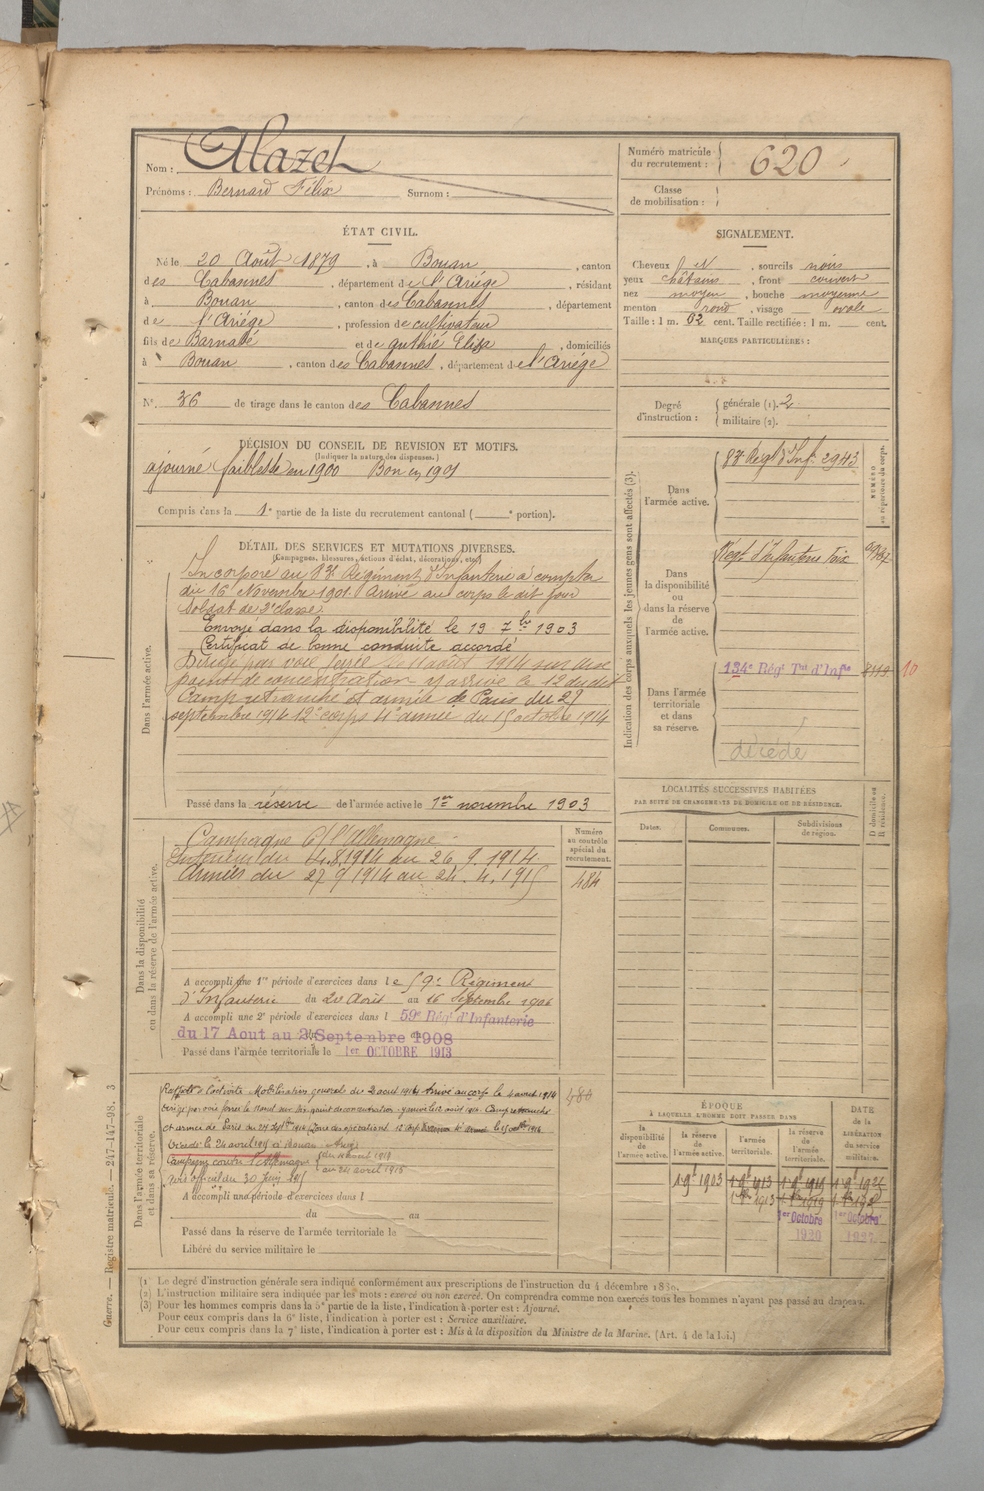 Nom : Alazet
Prénoms : Bernard Félix Surnom :
Numéro matricule du recrutement : 620
Classe de mobilisation :
ÉTAT CIVIL.
Né le 20 Août 1879, à Bouan, canton
des Cabannes, département de l'Ariège, résidant
à Bouan, canton des Cabannes, département
de l'Ariège, profession de cultivateur
fils de Barnabé et de Authié Eliza, domiciliés
à Bouan, canton des Cabannes, département de l'Ariège
N° 36 de tirage dans le canton des Cabannes
SIGNALEMENT.
Cheveux et, sourcils noirs
yeux châtains, front couvert
nez moyen, bouche moyenne
menton rond, visage ovale
Taille : 1 m. 62 cent. Taille rectifiée : 1 m. cent.
MARQUES PARTICULIÈRES :
Degré d'instruction : générale (1). 2
militaire (2).
DÉCISION DU CONSEIL DE REVISION ET MOTIFS.
(Indiquer la nature des dispenses.)
ajourné faiblesse en 1900 Bon en 1901
Compris dans la 1e partie de la liste du recrutement cantonal ( e portion).
DÉTAIL DES SERVICES ET MUTATIONS DIVERSES.
(Campagnes, blessures, actions d'éclat, décorations, etc.)
Dans l'armée active.
Incorporé au 83e Régiment d'Infanterie à compter
du 16 Novembre 1901. Arrivé au corps le dit jour
Soldat de 2e classe.
Envoyé dans la disponibilité le 19 7bre 1903
Certificat de bonne conduite accordé
Dirigé par voie ferrée le 11 août 1914 sur un
point de concentration y arrive le 12 dudit
Camp retranché et armée de Paris du 27
septembre 1914 12e corps 4e armée du 15 octobre 1914
Passé dans la réserve de l'armée active le 1er novembre 1903
Indication des corps auxquels les jeunes gens sont affectés (3).
NUMÉRO au répertoire du corps.
Dans l'armée active.
83e Regt d'Inf. 2943
Dans la disponibilité ou dans la réserve de l'armée active.
Régt d'Infanterie Foix
Dans l'armée territoriale et dans sa réserve.
134e Régt Tal d'Infie
10
décédé
LOCALITÉS SUCCESSIVES HABITÉES
PAR SUITE DE CHANGEMENTS DE DOMICILE OU DE RÉSIDENCE.
Dates. Communes. Subdivisions de région. D domicile ou R résidence.
Dans la disponibilité ou dans la réserve de l'armée active.
Numéro au contrôle spécial du recrutement.
484
Campagne c/ l'Allemagne
Intérieur du 4.8.1914 au 26.9.1914
Armées du 27.9.1914 au 24.4.1915
A accompli une 1re période d'exercices dans le 59e Régiment
d'Infanterie du 20 Août au 16 Septembre 1906
A accompli une 2e période d'exercices dans l 59e Rég' d'Infanterie
du 17 Aout au 2 Septembre 1908
Passé dans l'armée territoriale le 1er OCTOBRE 1913
Dans l'armée territoriale et dans sa réserve.
Rappelé à l'activité Mobilisation générale du 2 août 1914 Arrivé au corps le 4 août 1914
Dirigé par voie ferrée le 11 août sur un point de concentration y arrive le 12 août 1914. Camp retranché
et armée de Paris du 27 septbre 1914 le 15 octbre 1914
Décédé le 24 avril 1915 à Bouan Ariège
Campagne contre l'Allemagne du 4 août 1914
au 24 avril 1915
du 30 Juin 1915
A accompli une période d'exercices dans l
du au
Passé dans la réserve de l'armée territoriale le
Libéré du service militaire le
ÉPOQUE
À LAQUELLE L'HOMME DOIT PASSER DANS
la disponibilité de l'armée active. la réserve de l'armée active. l'armée territoriale. la réserve de l'armée territoriale. DATE de la LIBÉRATION du service militaire.
1er Octobre 1er Octobre
1920
(1) Le degré d'instruction générale sera indiqué conformément aux prescriptions de l'instruction du 4 décembre 1889.
(2) L'instruction militaire sera indiquée par les mots : exercé ou non exercé. On comprendra comme non exercés tous les hommes n'ayant pas passé au drapeau.
(3) Pour les hommes compris dans la 5e partie de la liste, l'indication à porter est : Ajourné.
Pour ceux compris dans la 6e liste, l'indication à porter est : Service auxiliaire.
Pour ceux compris dans la 7e liste, l'indication à porter est : Mis à la disposition du Ministre de la Marine. (Art. 4 de la Loi.)
Guerre. — Registre matricule. — 247-147-98. 3